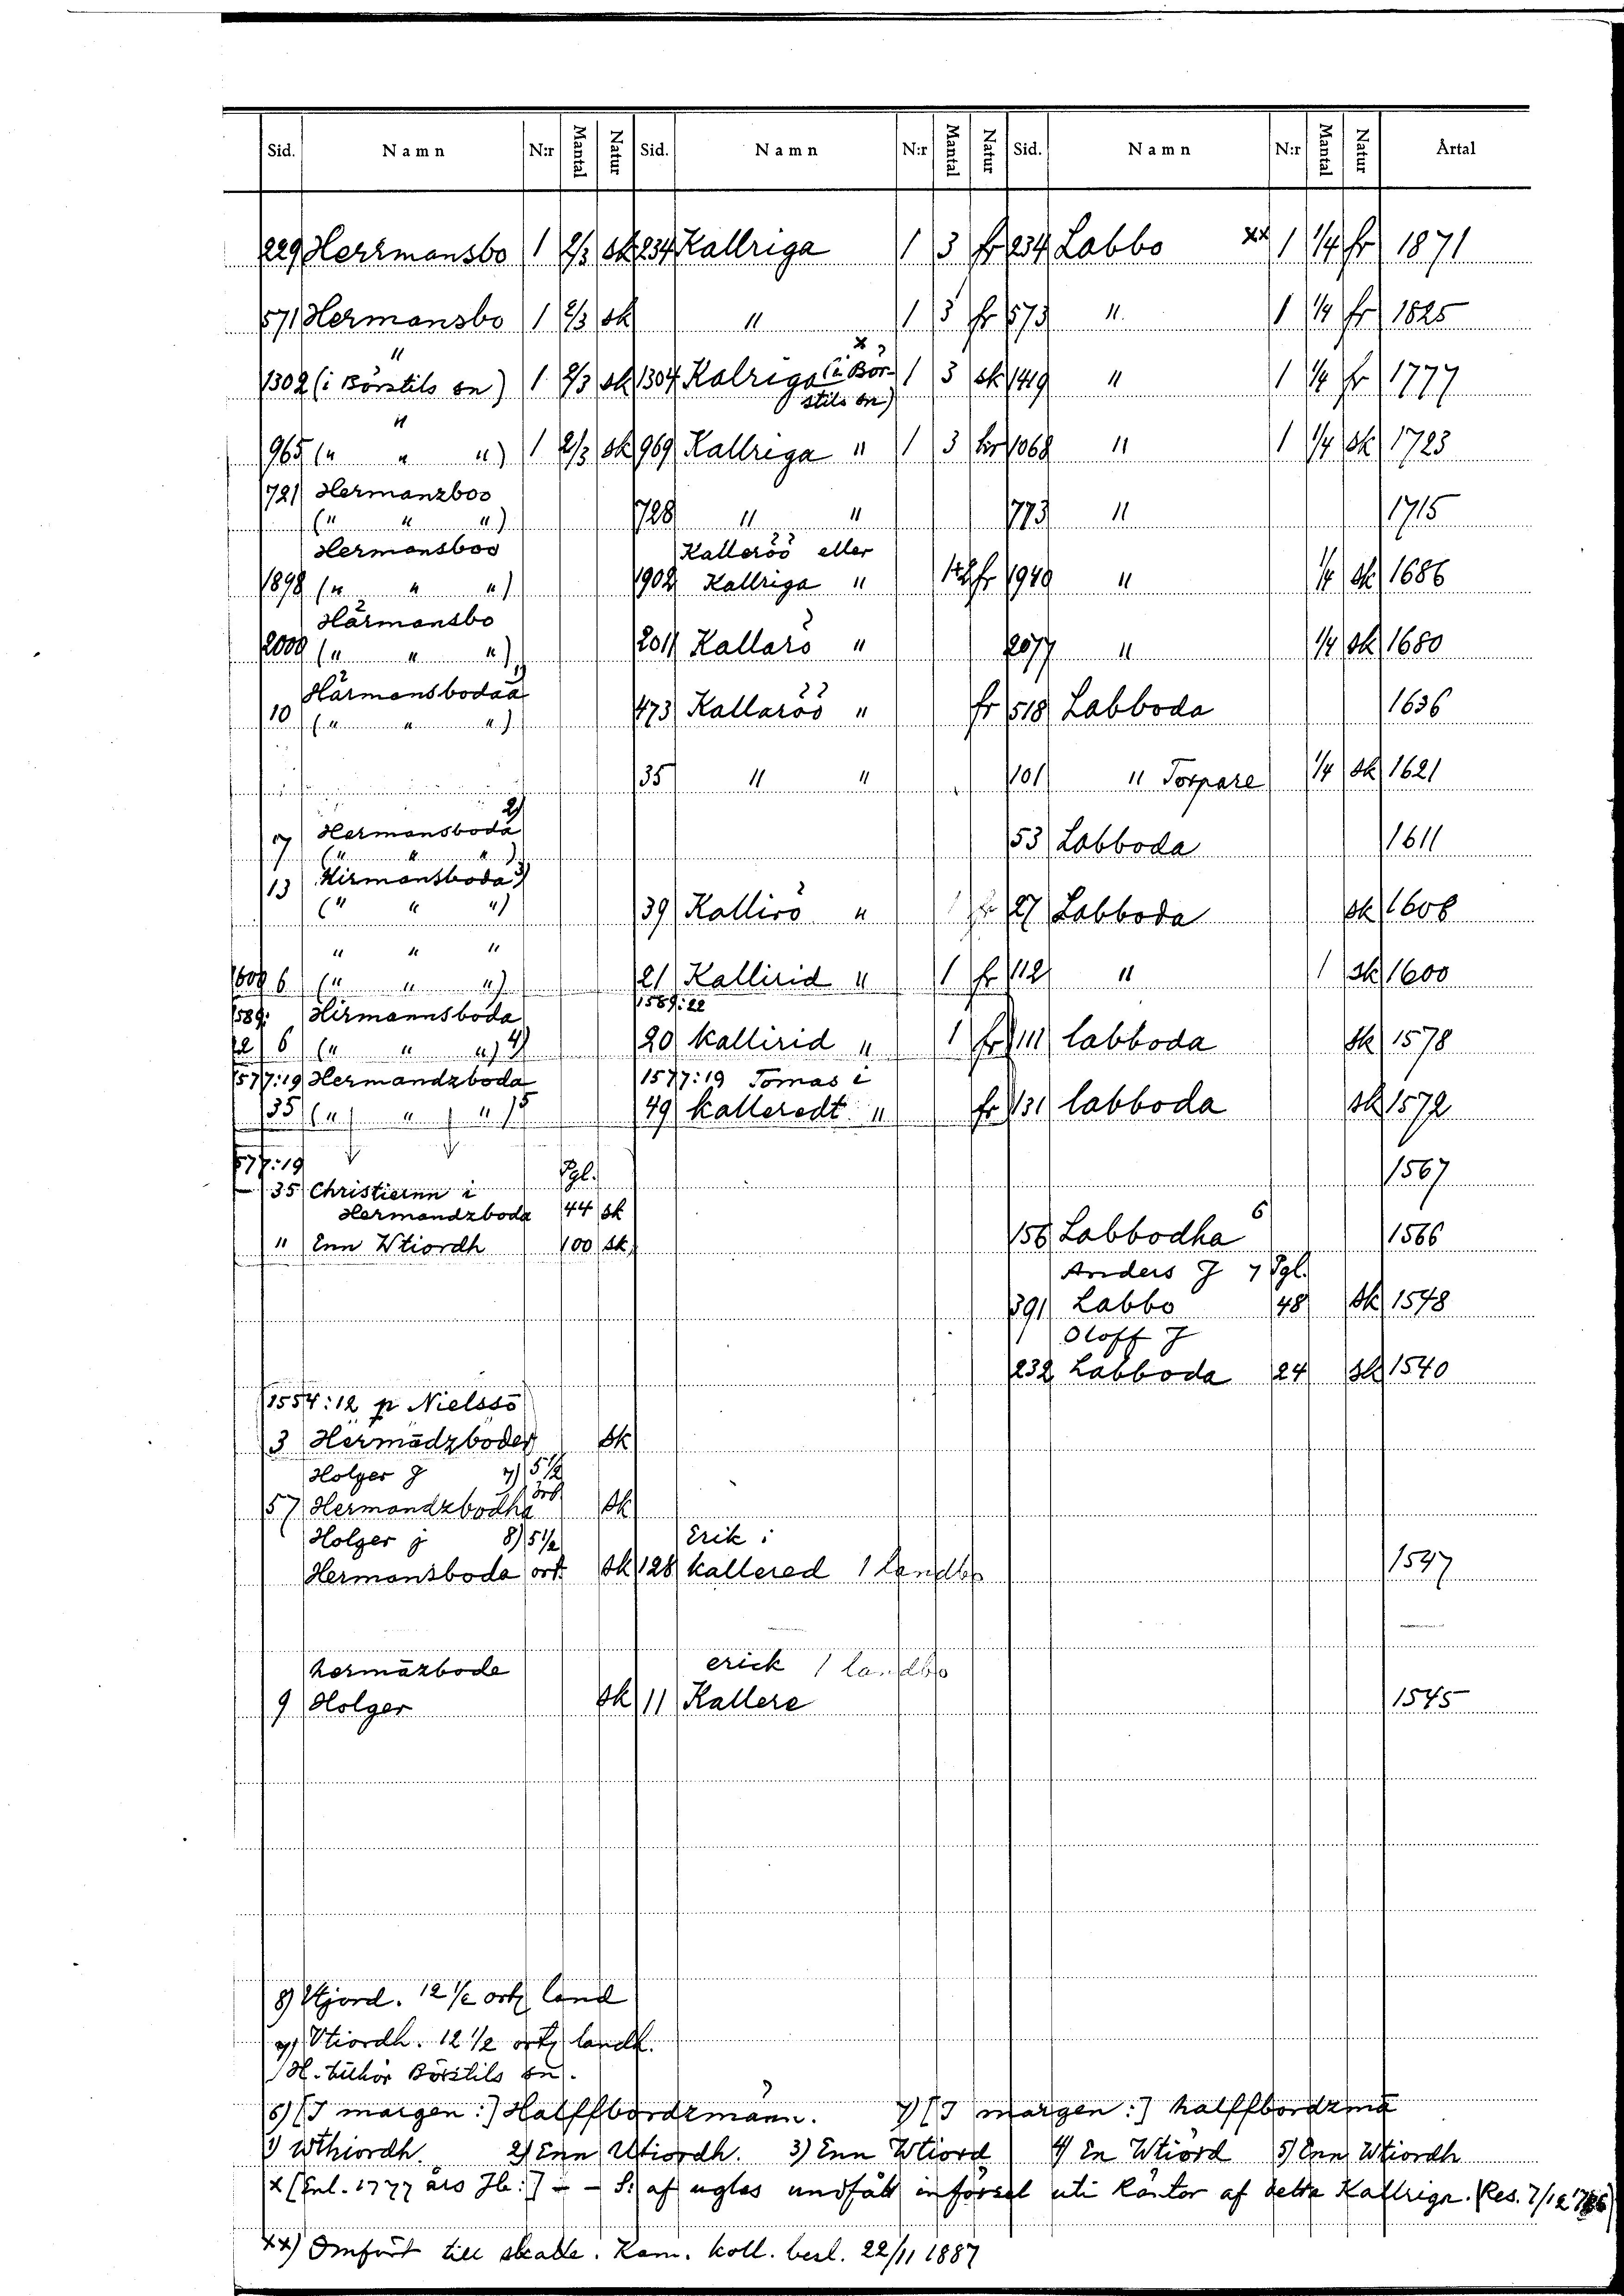 Sid. Namn N:r Mantal Natur Sid. Namn N:r Mantal Natur Sid. Namn N:r Mantal Natur Årtal
229 Herrmansbo 1 2/3 sk 234 Kallriga 1 3 fr 234 Labbo xx 1 1/4 fr 1871
571 Hermansbo 1 2/3 sk " 1 3 fr 573 " 1 1/4 fr 1825
"
1302 (i Börstils sn) 1 2/3 sk 1304 Kalriga x (i Bör- 1 3 sk 1419 " 1 1/4 fr 1777
stils sn)
"
965 (" " ") 1 2/3 sk 969 Kallriga " 1 3 hr 1068 " 1 1/4 sk 1723
721 Hermanzboo
(" " ") 728 " " 773 " 1715
Hermansboo Kalleröö eller
1898 (" " ") 1902 Kallriga " fr 1940 " 1/4 sk 1686
Härmansbo
2000 (" " ") 2011 Kallarö " 2077 " 1/4 sk 1680
Härmansbodaa 1)
10 (" " ") 473 Kallaröö " fr 518 Labboda 1636
35 " " 101 " Torpare 1/4 sk 1621
7 Hermansboda 2) 53 Labboda 1611
(" " ")
13 Hirmansboda 3)
(" " ") 39 Kallirö " 27 Labboda sk 1608
" " "
1600 6 (" " ") 21 Kallirid " 1 fr 112 " 1 sk 1600
1589: Hirmannsboda 1589:22
22 6 (" " ") 4) 20 kallirid " 1 fr 111 labboda sk 1578
1577:19 Hermandzboda 1577:19 Tomas i
35 (" " ") 5 49 kalleredt " fr 131 labboda sk 1572
1577:19 Pgl. 1567
35 Christiernn i
Hermandzboda 44 sk
" Enn Wtiordh 100 sk 156 Labbodha 6 1566
Anders J 7 Pgl.
391 Labbo 48 sk 1548
Oloff J
232 Labboda 24 sk 1540
1554:12 p Nielssö
3 Hermādzboder sk
Holger J 7) 5 1/2
57 Hermandzbodha ort sk
Holger j 8) 5 1/2 Erik i
Hermansboda ort. sk 128 kallered 1 landbo 1547
hermāzbode erick 1 landbo
9 Holger sk 11 Kallere 1545
8) Utjord. 12 1/2 ortz land
7) Vtiordh. 12 1/2 ortz landh.
H. tillhör Börstils sn.
6) [I margen:] Halffbordzmänn. 7) [I margen:] halffbordzmā
1) Wthiordh. 2) Enn Utiordh. 3) Enn Wtiord 4) En Wtiord 5) Enn Wtiordh
x [Enl. 1777 års Jb:] - - S: af uglas undfått införsel uti Räntor af detta Kallriga. (Res. 7/12
xx) Omfört till skatte. Kam. koll. besl. 22/11 1887